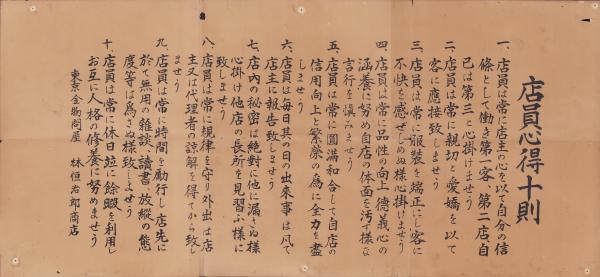 店員心得十則
一、店員は常に店主の心を以て自分の信
條として働き第一客、第二店、自
己は第三と心掛けませう
二、店員は常に親切と愛嬌を以て
客に應接致しませう
三、店員は常に服裝を端正にし客に
不快を感ぜしめぬ様心掛けませう
四、店員は常に品性の向上德義心の
涵養に努め自店の体面を汚す様な
言行を愼みませう
五、店員は常に圓滿和合して自店の
信用向上と繁榮の爲に全力を盡
しませう
六、店員は毎日其の日の出來事は凡て
店主に報告致しませう
七、店内の秘密は絶對に他に漏さぬ様
心掛け他店の長所を見習ふ様に
致しませう
八、店員は常に規律を守り外出は店
主又は代理者の諒解を得てから致し
ませう
九、店員は常に時間を勵行し店先に
於て無用の雜談、讀書、放縱の態
度等は爲さぬ様致しませう
十、店員は常に休日並に餘暇を利用し
お互に人格の修養に努めませう
東京金物問屋 林恒治郎商店